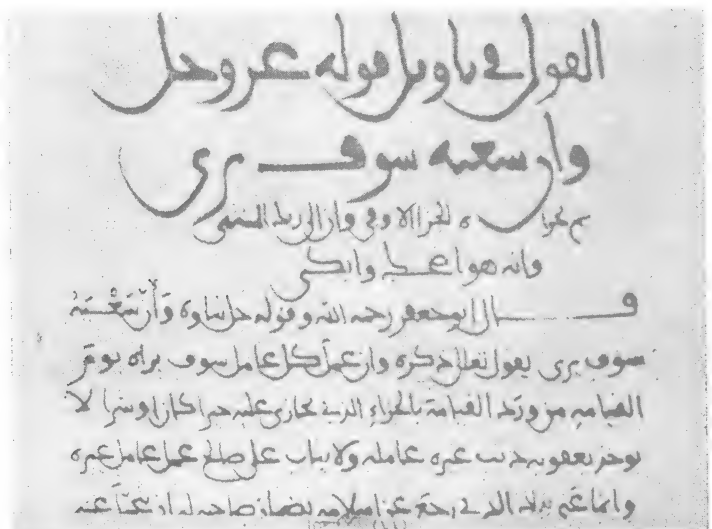 القول في تاويل قوله عز وجل
وان سعيه سوف يرى
ثم يجزاه الجزا الاوفى وان الى ربك المنتهى
وانه هو اضحك وابكى
قال ابو جعفر رحمه الله وقوله جل ثناوه وَأَنَّ سَعْيَهُ
سوف يرى يقول تعالى ذكره وان عمل كل عامل سوف يراه يوم
القيامة من ورد القيامة بالجزاء الذي يجازى عليه خيرا كان او شرا لا
يوخذ بعقوبة ذنب غير عامله ولا يثاب على صالح عمل عامل غيره
وانما عني بذلك الذي رجع عن اسلامه بضمان صاحبه له ان يتحمل عنه